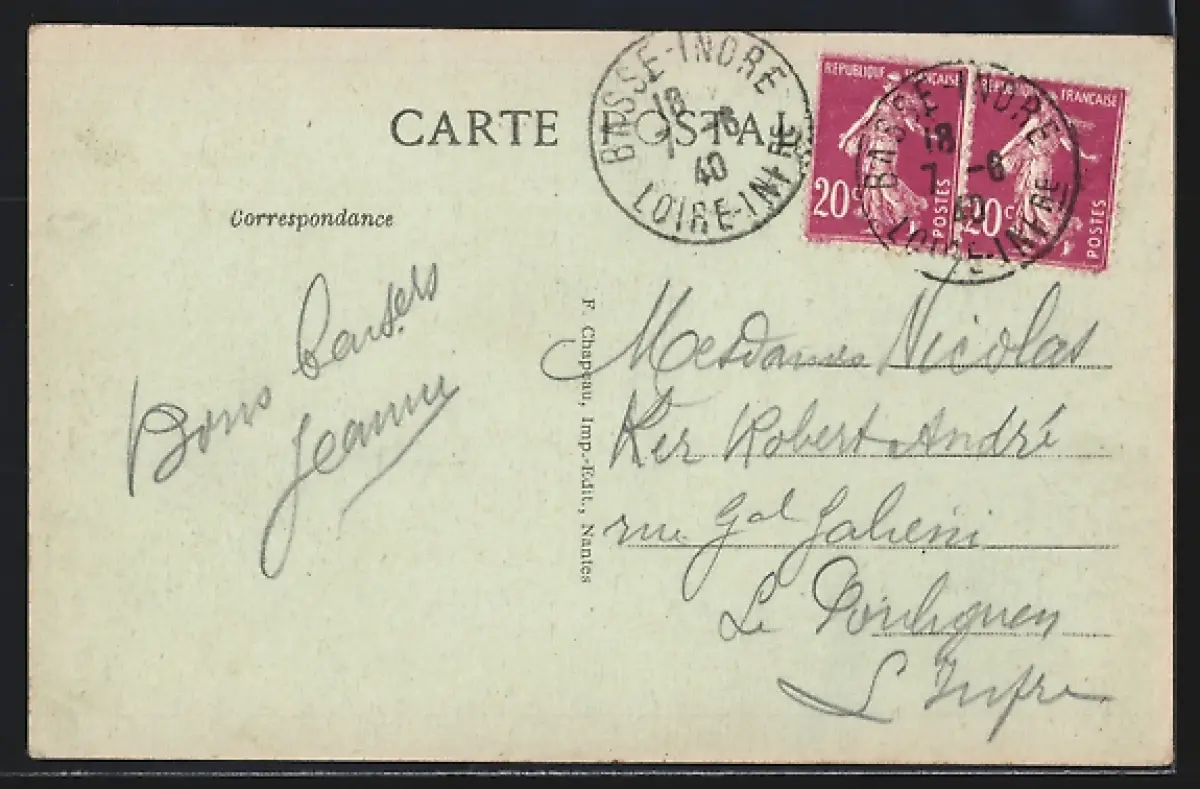 CARTE POSTALE
BASSE-INDRE
18
7 -6
40
LOIRE-INFRE
REPUBLIQUE FRANÇAISE
20c
POSTES
REPUBLIQUE FRANÇAISE
20c
POSTES
BASSE-INDRE
18
7 -6
40
LOIRE-INFRE
Correspondance
Bons baisers
Jeanne
F. Chapeau, Imp.-Edit., Nantes
Mesdames Nicolas
Ker Robert André
rue Gal Galieni
Le Pouliguen
L Infre